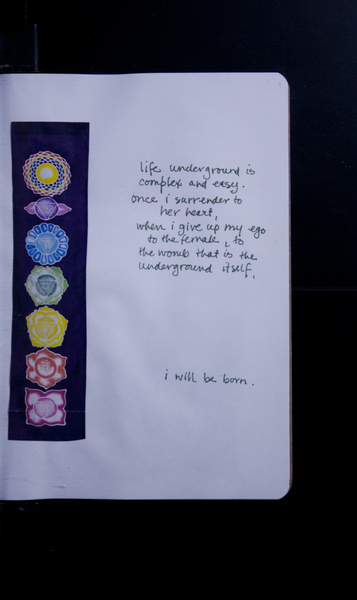 life underground is
complex and easy.
once i surrender to
her heart,
when i give up my ego
to the female, to
the womb that is the
underground itself,
i will be born.